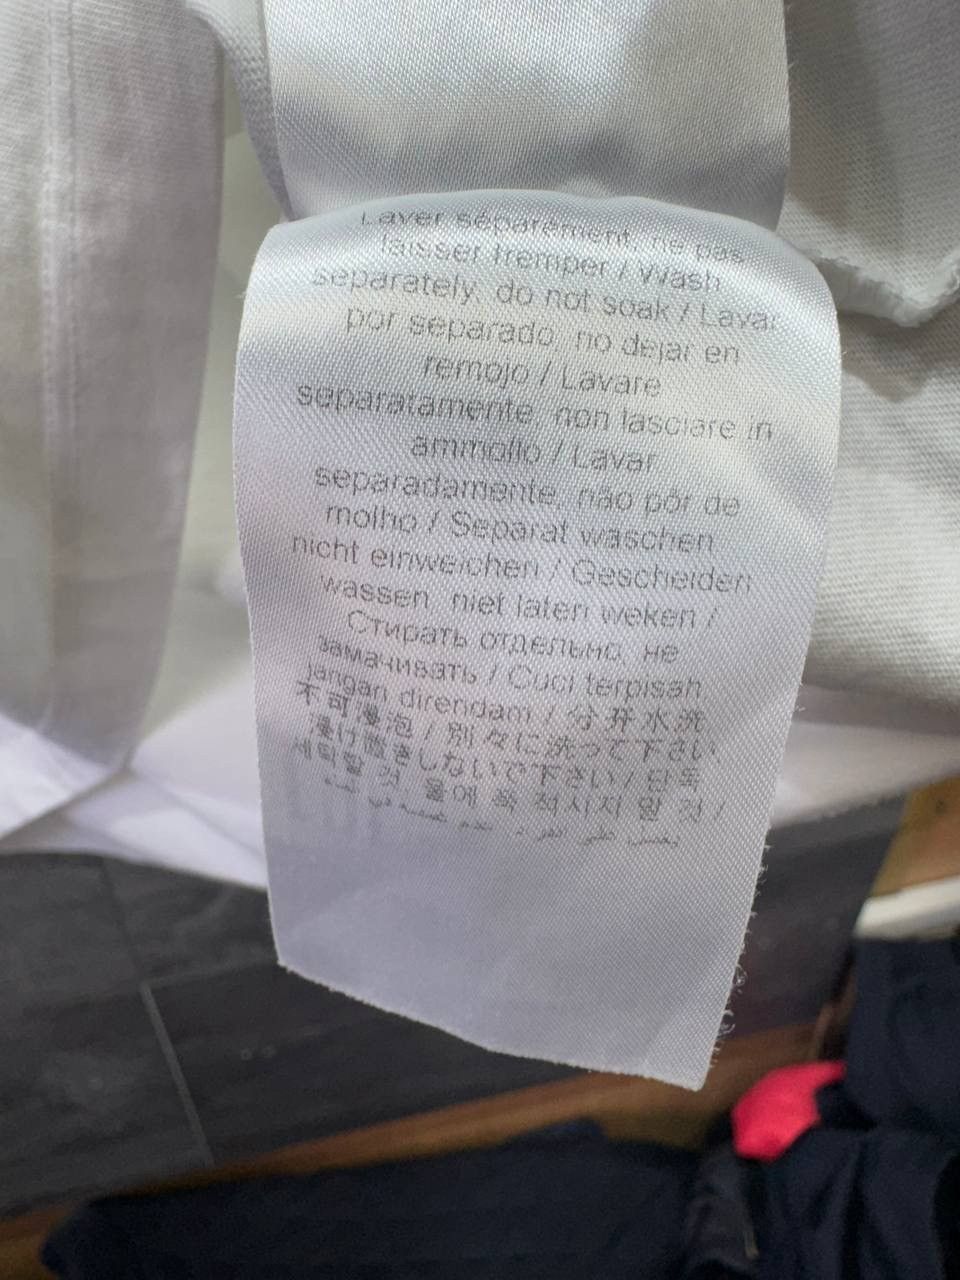 Laver séparément, ne pas
laisser tremper / Wash
separately, do not soak / Lavar
por separado, no dejar en
remojo / Lavare
separatamente, non lasciare in
ammollo / Lavar
separadamente, não pôr de
molho / Separat waschen
nicht einweichen / Gescheiden
wassen, niet laten weken /
Стирать отдельно, не
замачивать / Cuci terpisah
jangan direndam / 分开水洗
不可浸泡 / 別々に洗って下さい、
漬け置きしないで下さい / 단독
세탁할 것, 물에 푹 적시지 말 것 /